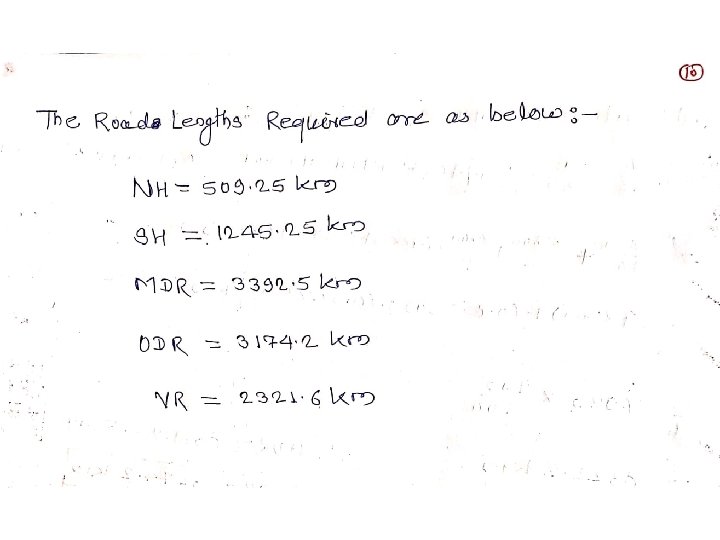 10
The Roads Lengths Required are as below:-
NH = 509.25 km
SH = 1245.25 km
MDR = 3392.5 km
ODR = 3174.2 km
VR = 2321.6 km